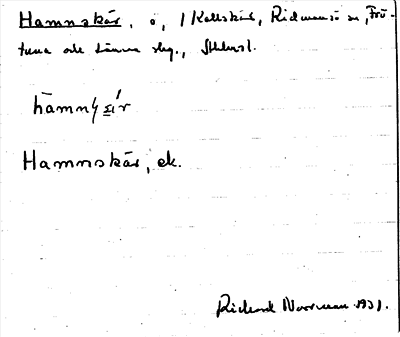 Hamnskär, ö, / Kallskär, Ridmansö sn, Frö-
tuna och Länna skg., Sthlmsl.
Hamnskär, ek.
Richard Norrman 1931.